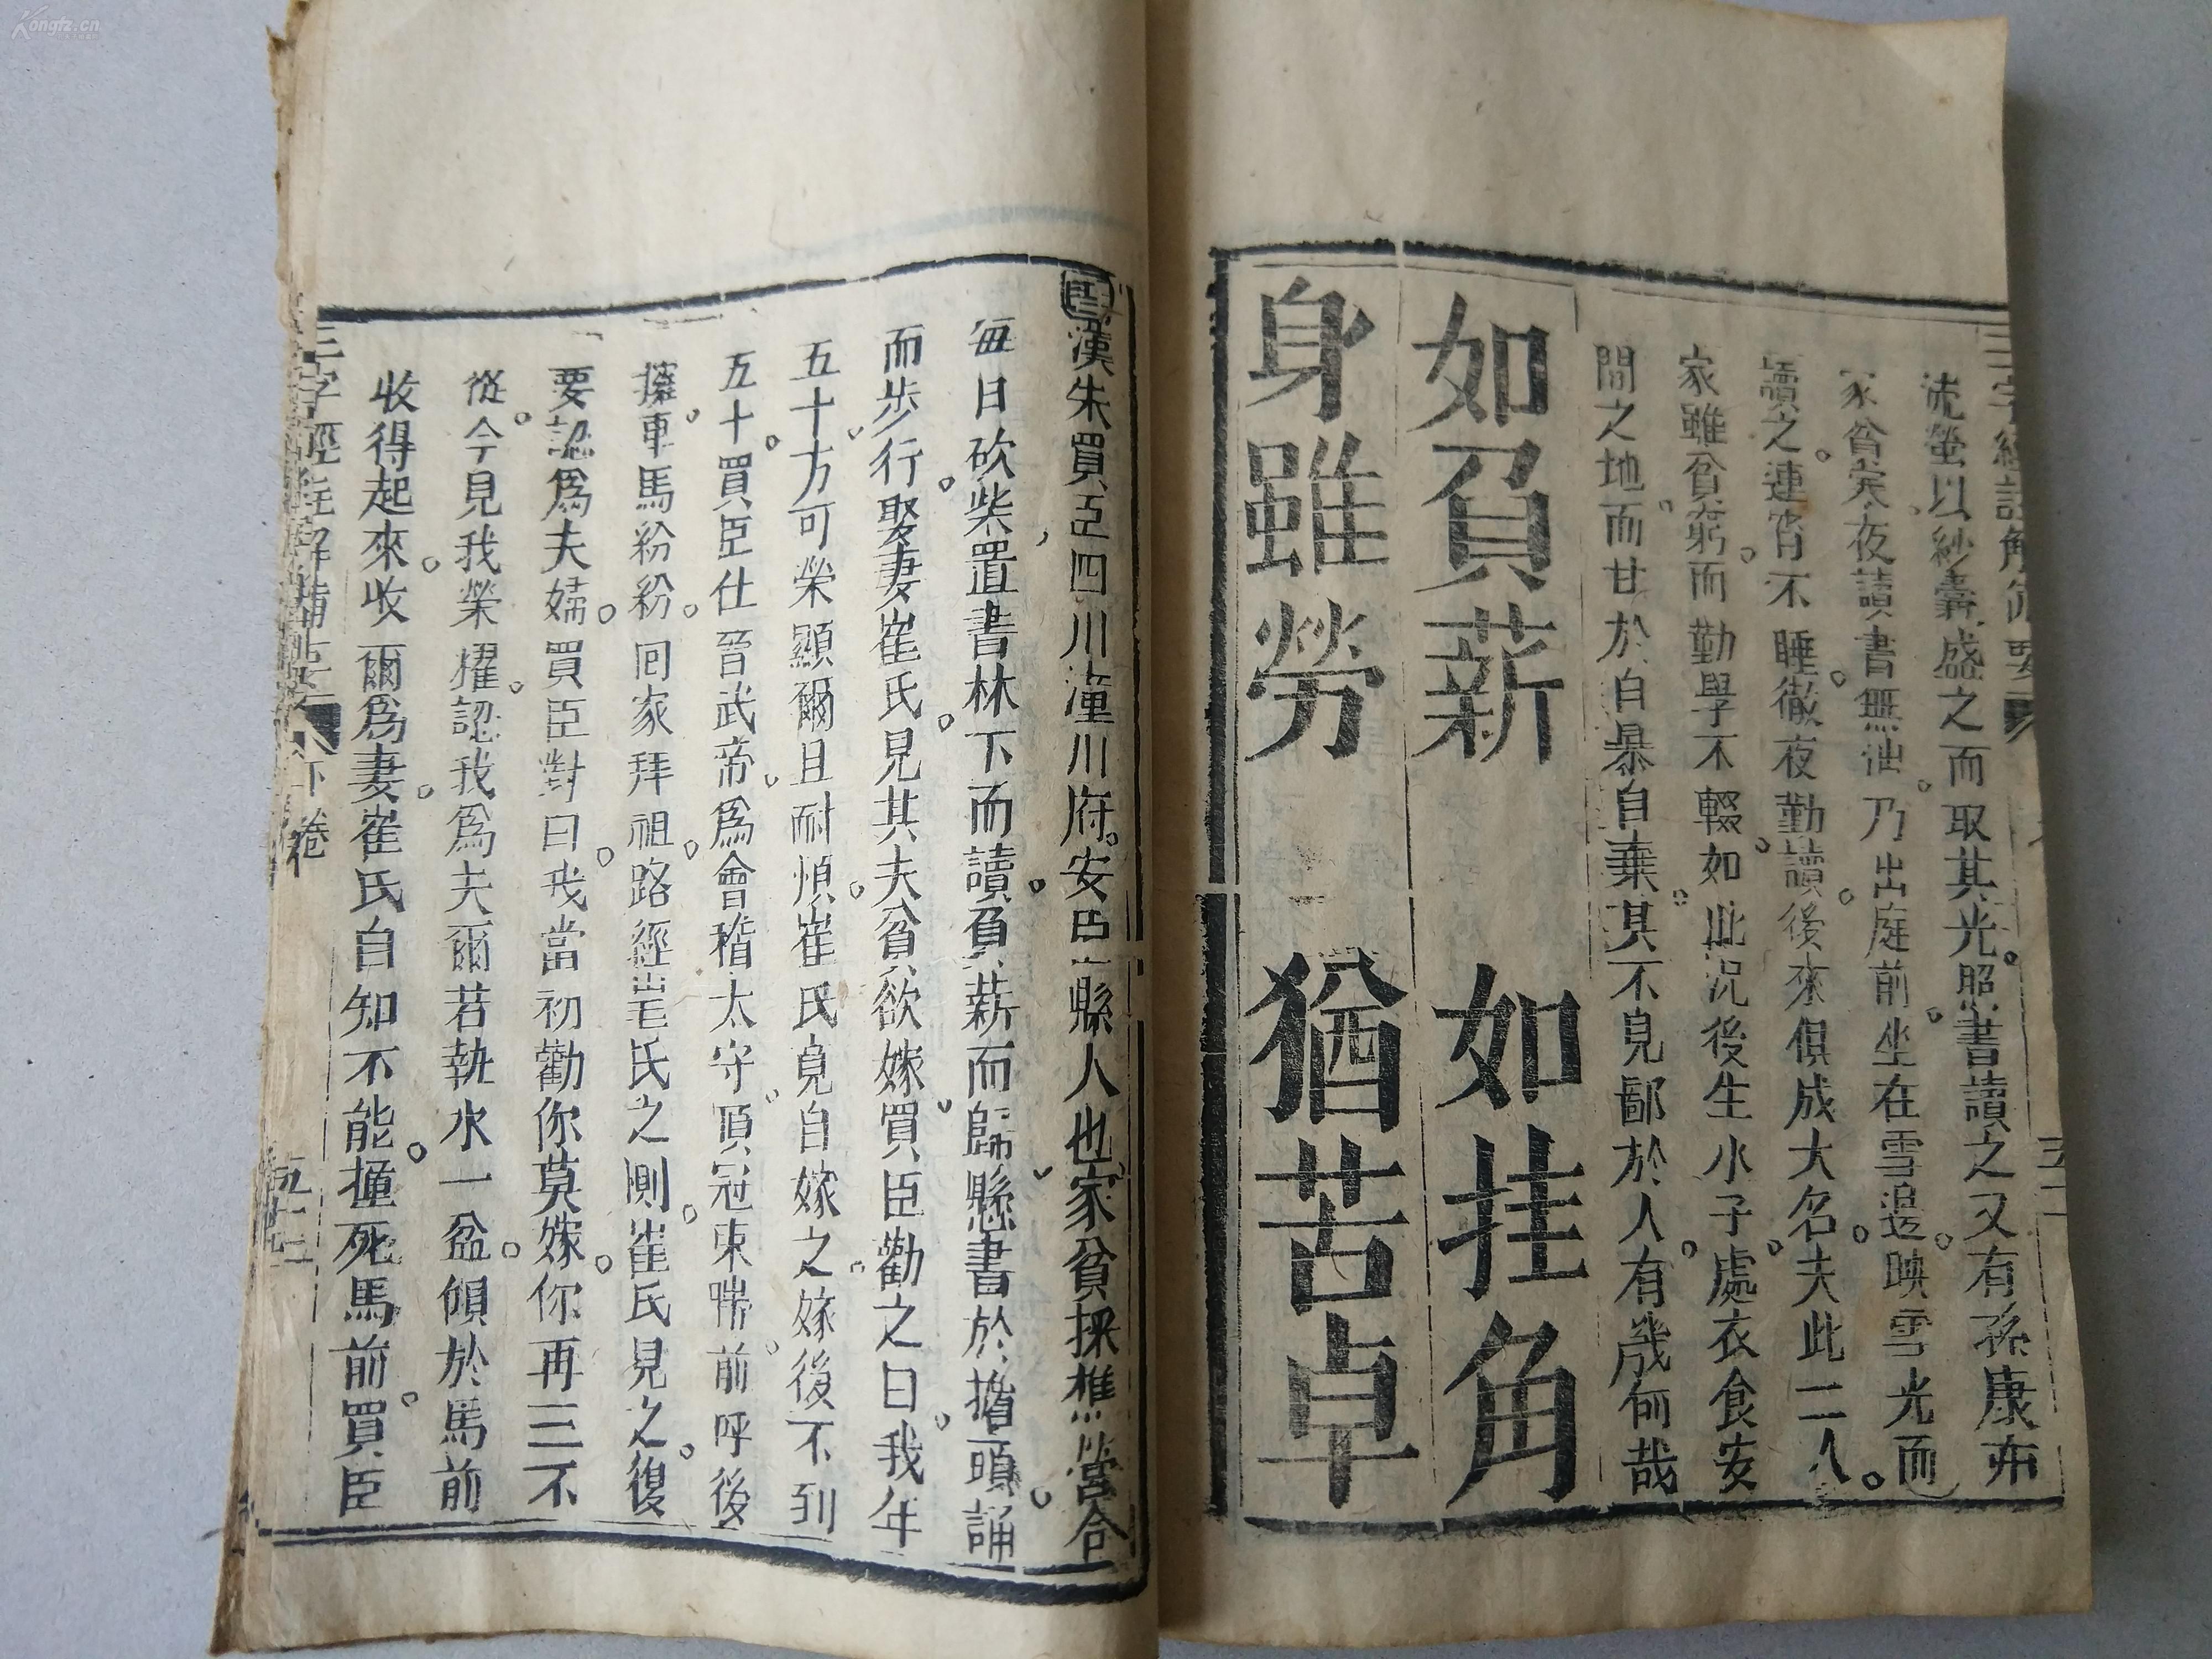 三字經註解備要
流螢以紗囊盛之而取其光照書讀之又有孫康亦
家貧矣夜讀書無油乃出庭前坐在雪邊映雪光而
讀之連宵不睡徹夜勤讀後來俱成大名夫此二人
家雖貧窮而勤學不輟如此況後生小子處衣食安
閒之地而甘於自暴自棄其不見鄙於人有幾何哉
如負薪 如挂角
身雖勞 猶苦卓
漢朱買臣四川潼川府安縣人也家貧採樵營合
每日砍柴置書林下而讀負薪而歸懸書於擔頭誦
而步行娶妻崔氏見其夫貧欲嫁買臣勸之曰我年
五十方可榮顯爾且耐煩崔氏竟自嫁之嫁後不到
五十買臣仕晉武帝為會稽太守頂冠束帶前呼後
擁車馬紛紛回家拜祖路經崔氏之側崔氏見之復
要認為夫婦買臣對曰我當初勸你莫嫁你再三不
從今見我榮耀認我為夫爾若執水一盆傾於馬前
收得起來收爾為妻崔氏自知不能撞死馬前買臣
三字經註解備要 下卷
Kongfz.cn